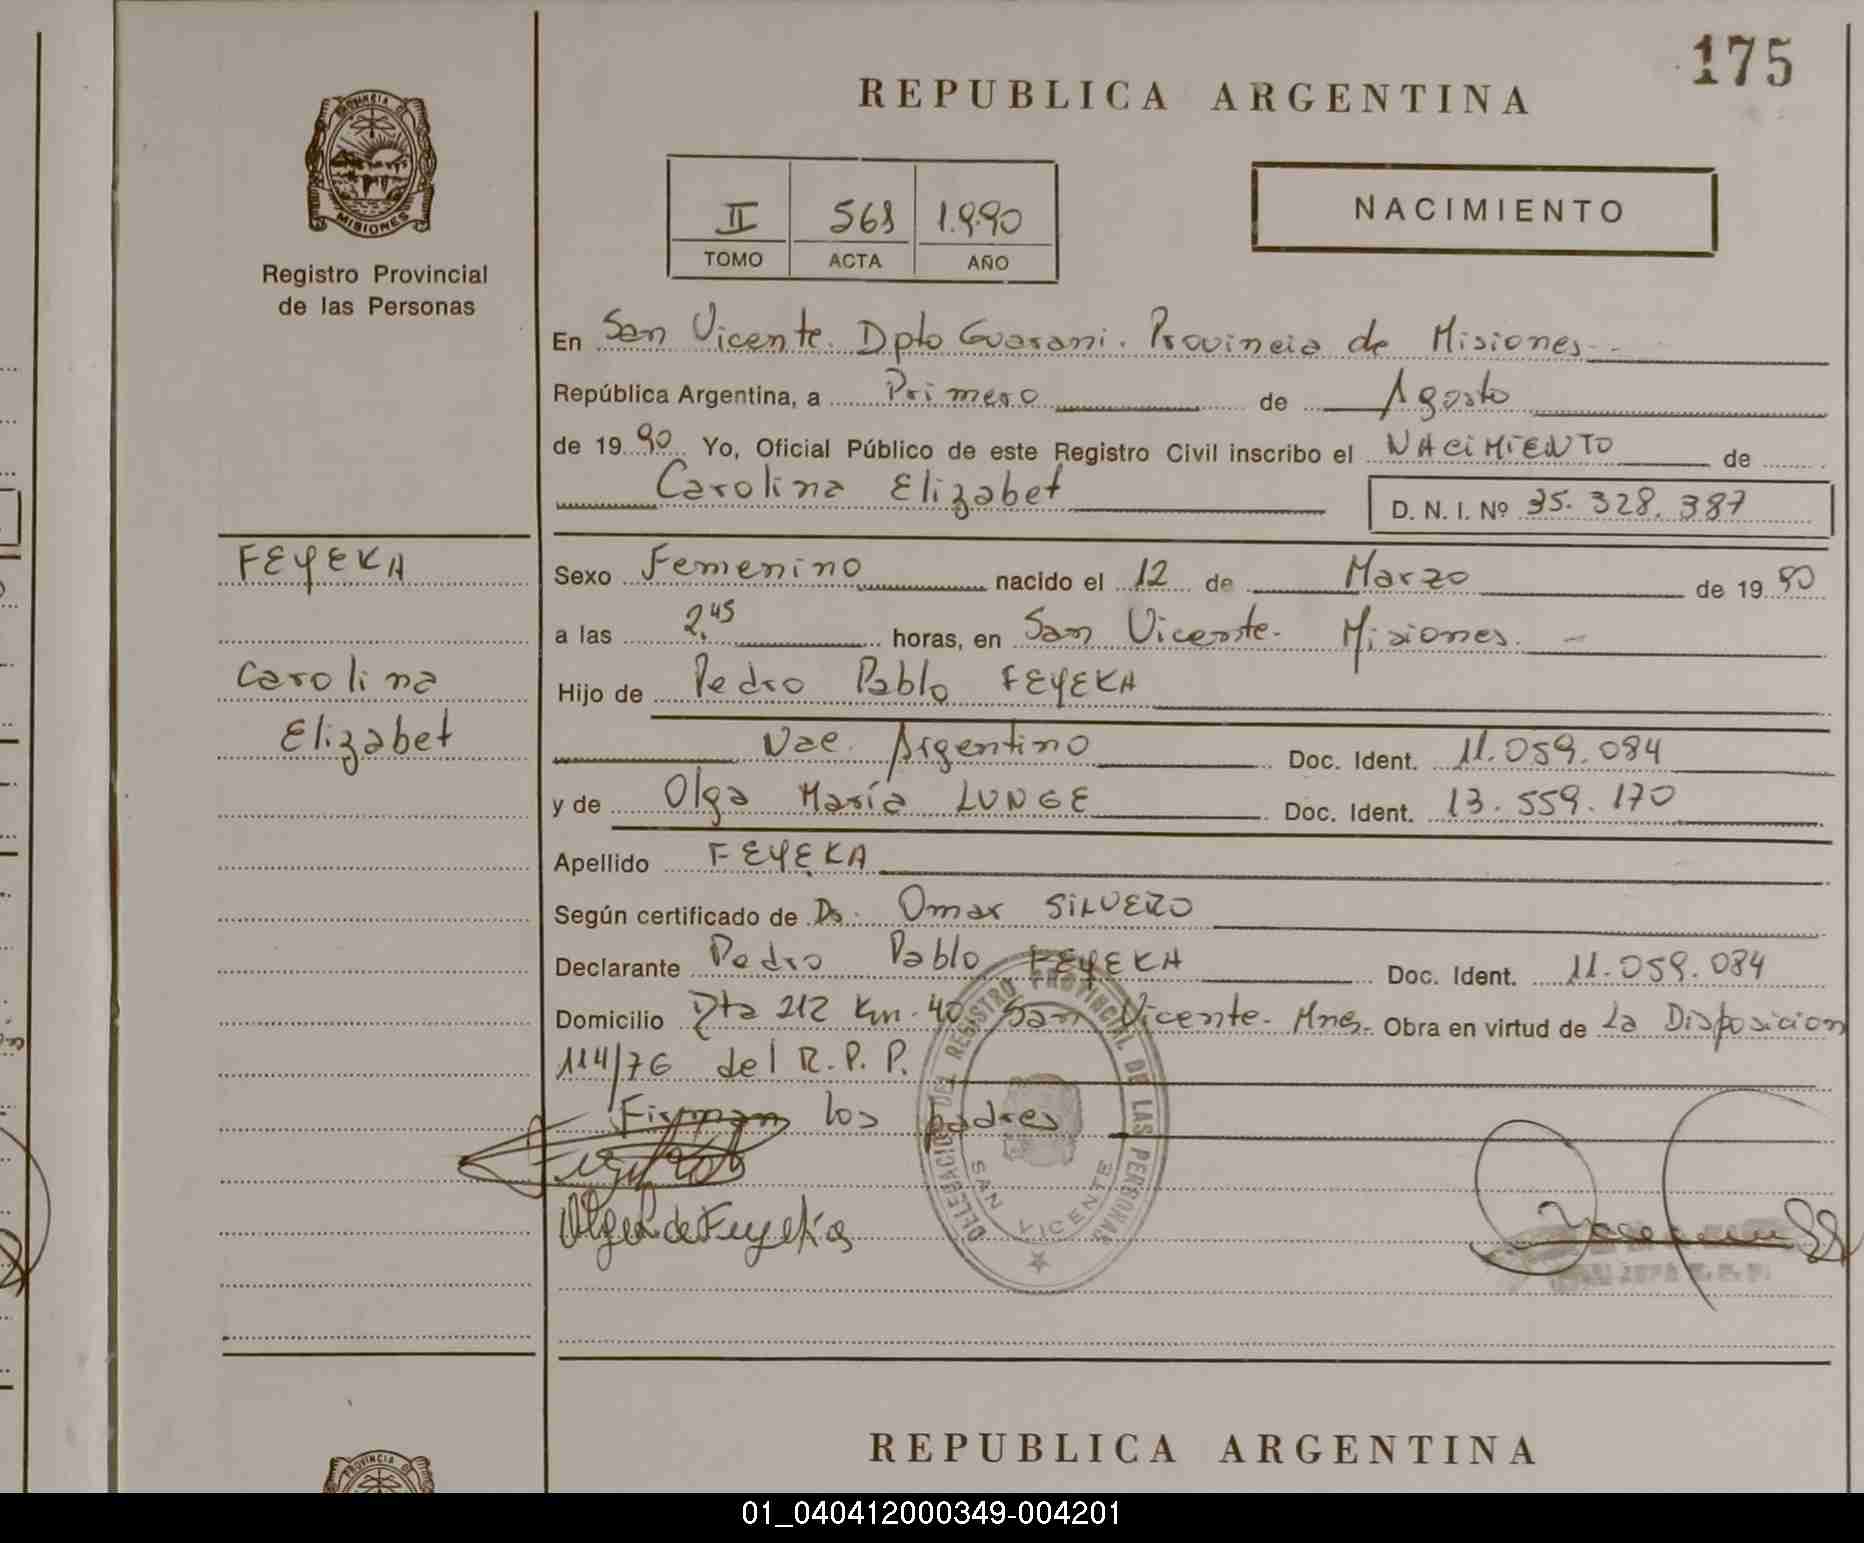 175
REPUBLICA ARGENTINA
PROVINCIA DE
MISIONES
Registro Provincial
de las Personas
II 568 1.990
TOMO ACTA AÑO
NACIMIENTO
En San Vicente. Dpto Guarani. Provincia de Misiones
República Argentina, a Primero de Agosto
de 1990 Yo, Oficial Público de este Registro Civil inscribo el NACIMIENTO de
Carolina Elizabet D. N. I. Nº 35.328.387
FEYEKA
Sexo Femenino nacido el 12 de Marzo de 1990
a las 2,45 horas, en San Vicente. Misiones. -
Carolina
Hijo de Pedro Pablo FEYEKA
Elizabet
Nac. Argentino Doc. Ident. 11.059.084
y de Olga María LUNGE Doc. Ident. 13.559.170
Apellido FEYEKA
Según certificado de Dr. Omar SILVERO
Declarante Pedro Pablo FEYEKA Doc. Ident. 11.059.084
Domicilio Rta 212 Km. 40. San Vicente. Mnes. Obra en virtud de la Disposicion
114/76 del R.P.P.
Firman los padres
DELEGACION DEL REGISTRO PROVINCIAL DE LAS PERSONAS
SAN VICENTE
de Feyeka
REPUBLICA ARGENTINA
PROVINCIA DE
01_040412000349-004201